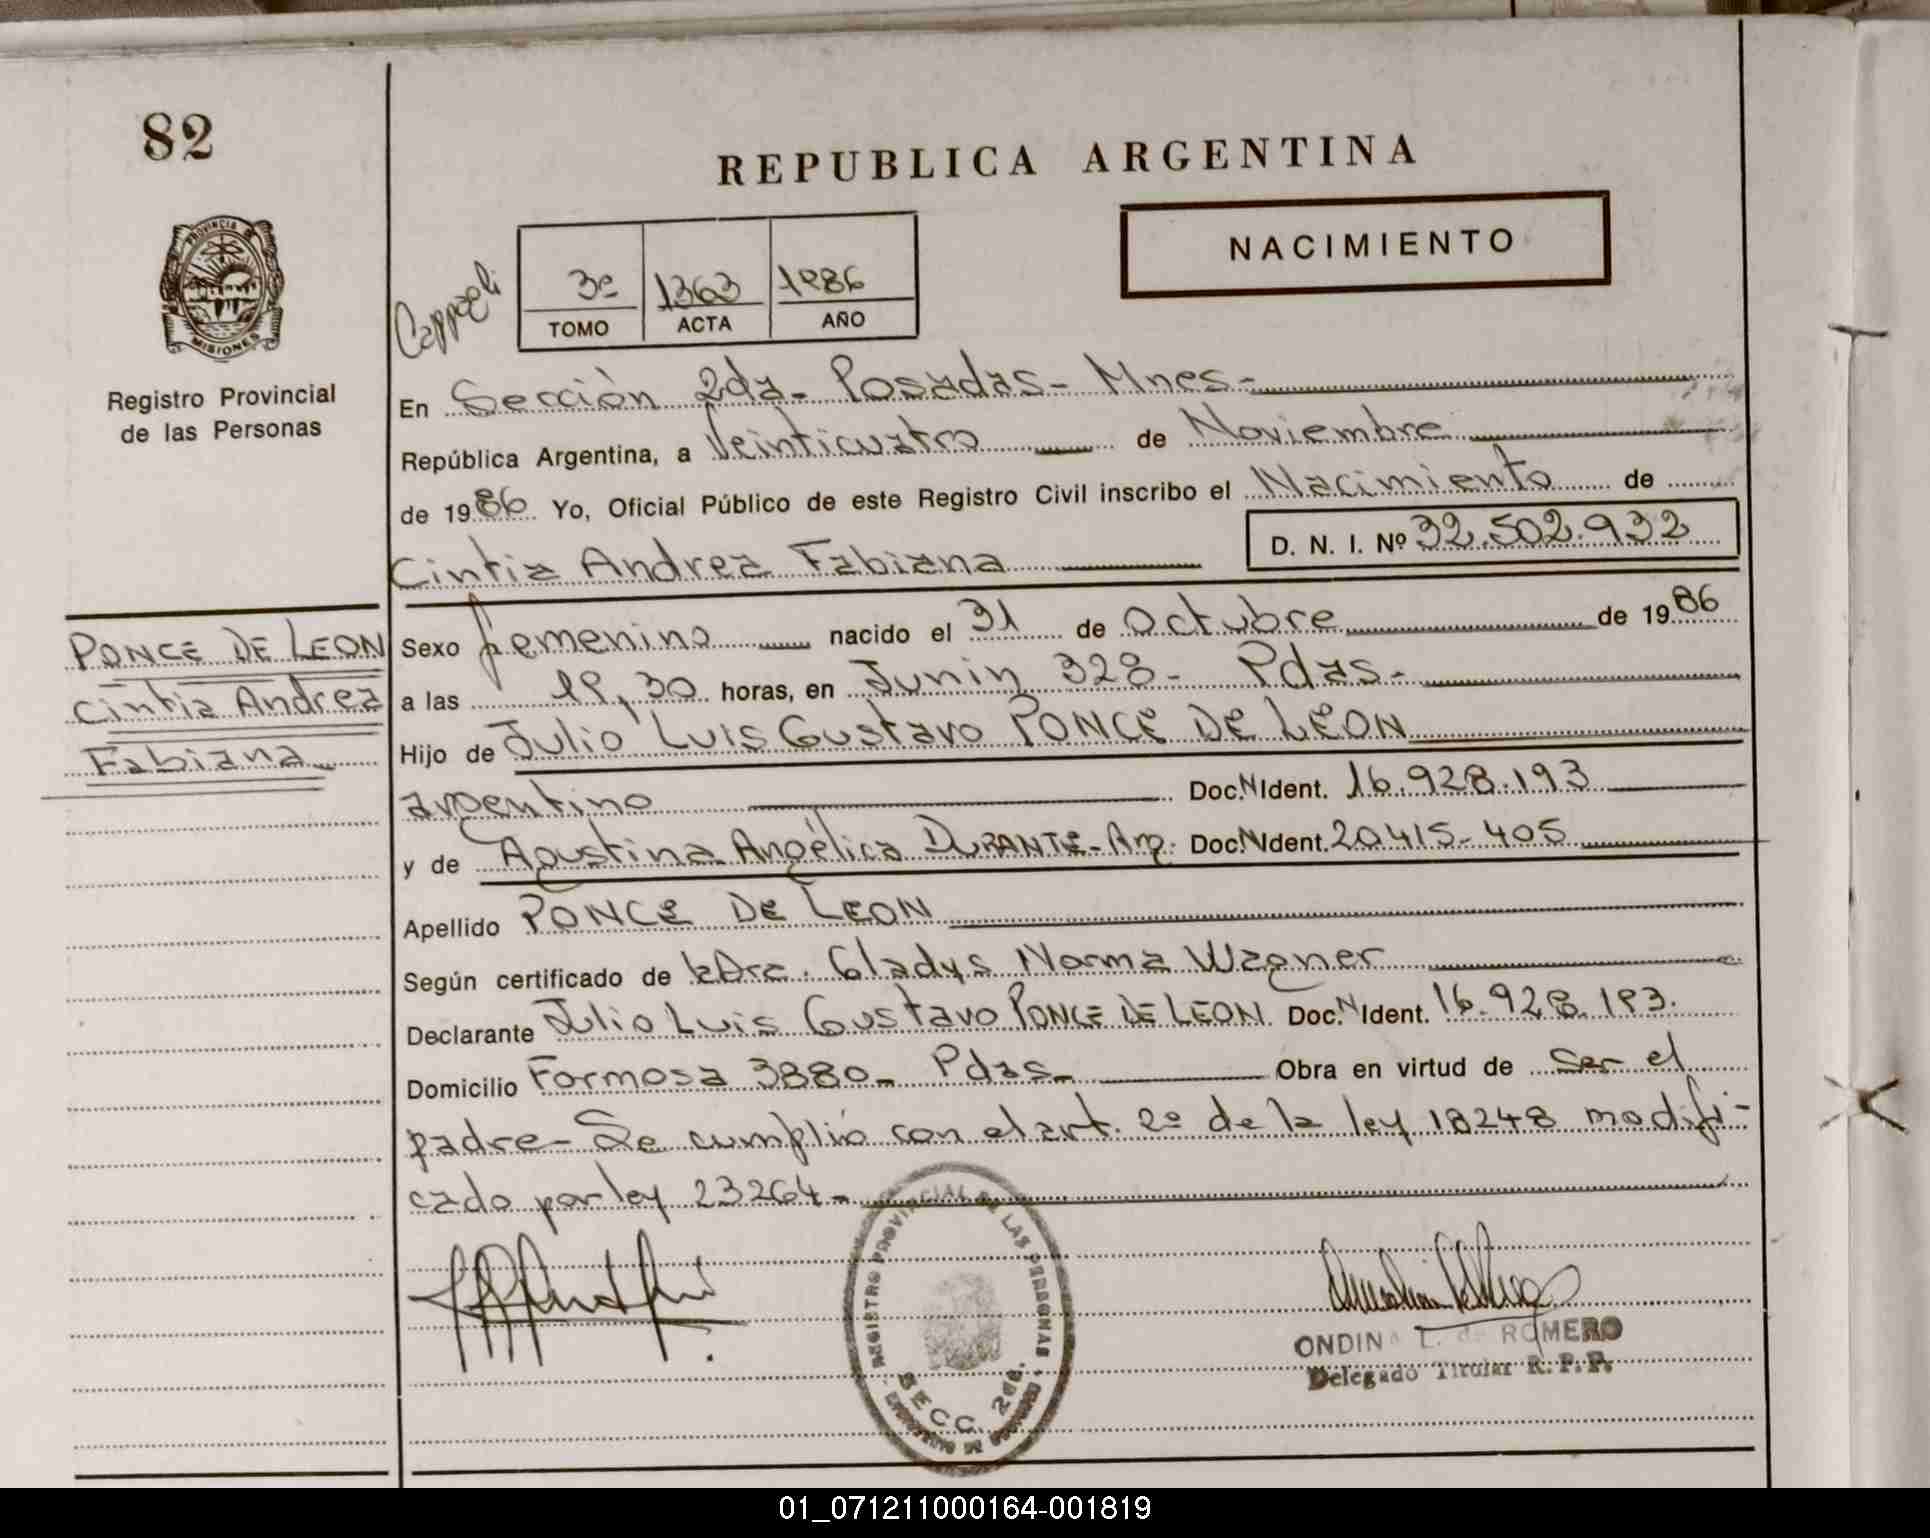 82
REPUBLICA ARGENTINA
NACIMIENTO
PROVINCIA DE
MISIONES
Registro Provincial
de las Personas
3º 1363 1986
TOMO ACTA AÑO
En Sección 2da- Posadas- Mnes-
República Argentina, a Veinticuatro de Noviembre
de 1986 Yo, Oficial Público de este Registro Civil inscribo el Nacimiento de
Cintia Andrea Fabiana D. N. I. Nº 32.502.932
PONCE DE LEON
Cintia Andrea
Fabiana
Sexo femenino nacido el 31 de Octubre de 1986
a las 19,30 horas, en Junin 328- Pdas-
Hijo de Julio Luis Gustavo PONCE DE LEON
argentino Doc.N Ident. 16.928.193
y de Agustina Angélica DURANTE- Arg. Doc.N Ident. 20415-405
Apellido PONCE DE LEON
Según certificado de la Dra. Gladys Norma Wagner
Declarante Julio Luis Gustavo PONCE DE LEON Doc.N Ident. 16.928.193.
Domicilio Formosa 3880- Pdas- Obra en virtud de ser el
padre- Se cumplió con el art. 2º de la ley 18248 modifi-
cado por ley 23264-
REGISTRO PROVINCIAL DE LAS PERSONAS
SECC. 2da.
ONDINA L. de ROMERO
Delegado Titular R. P. P.
01_071211000164-001819